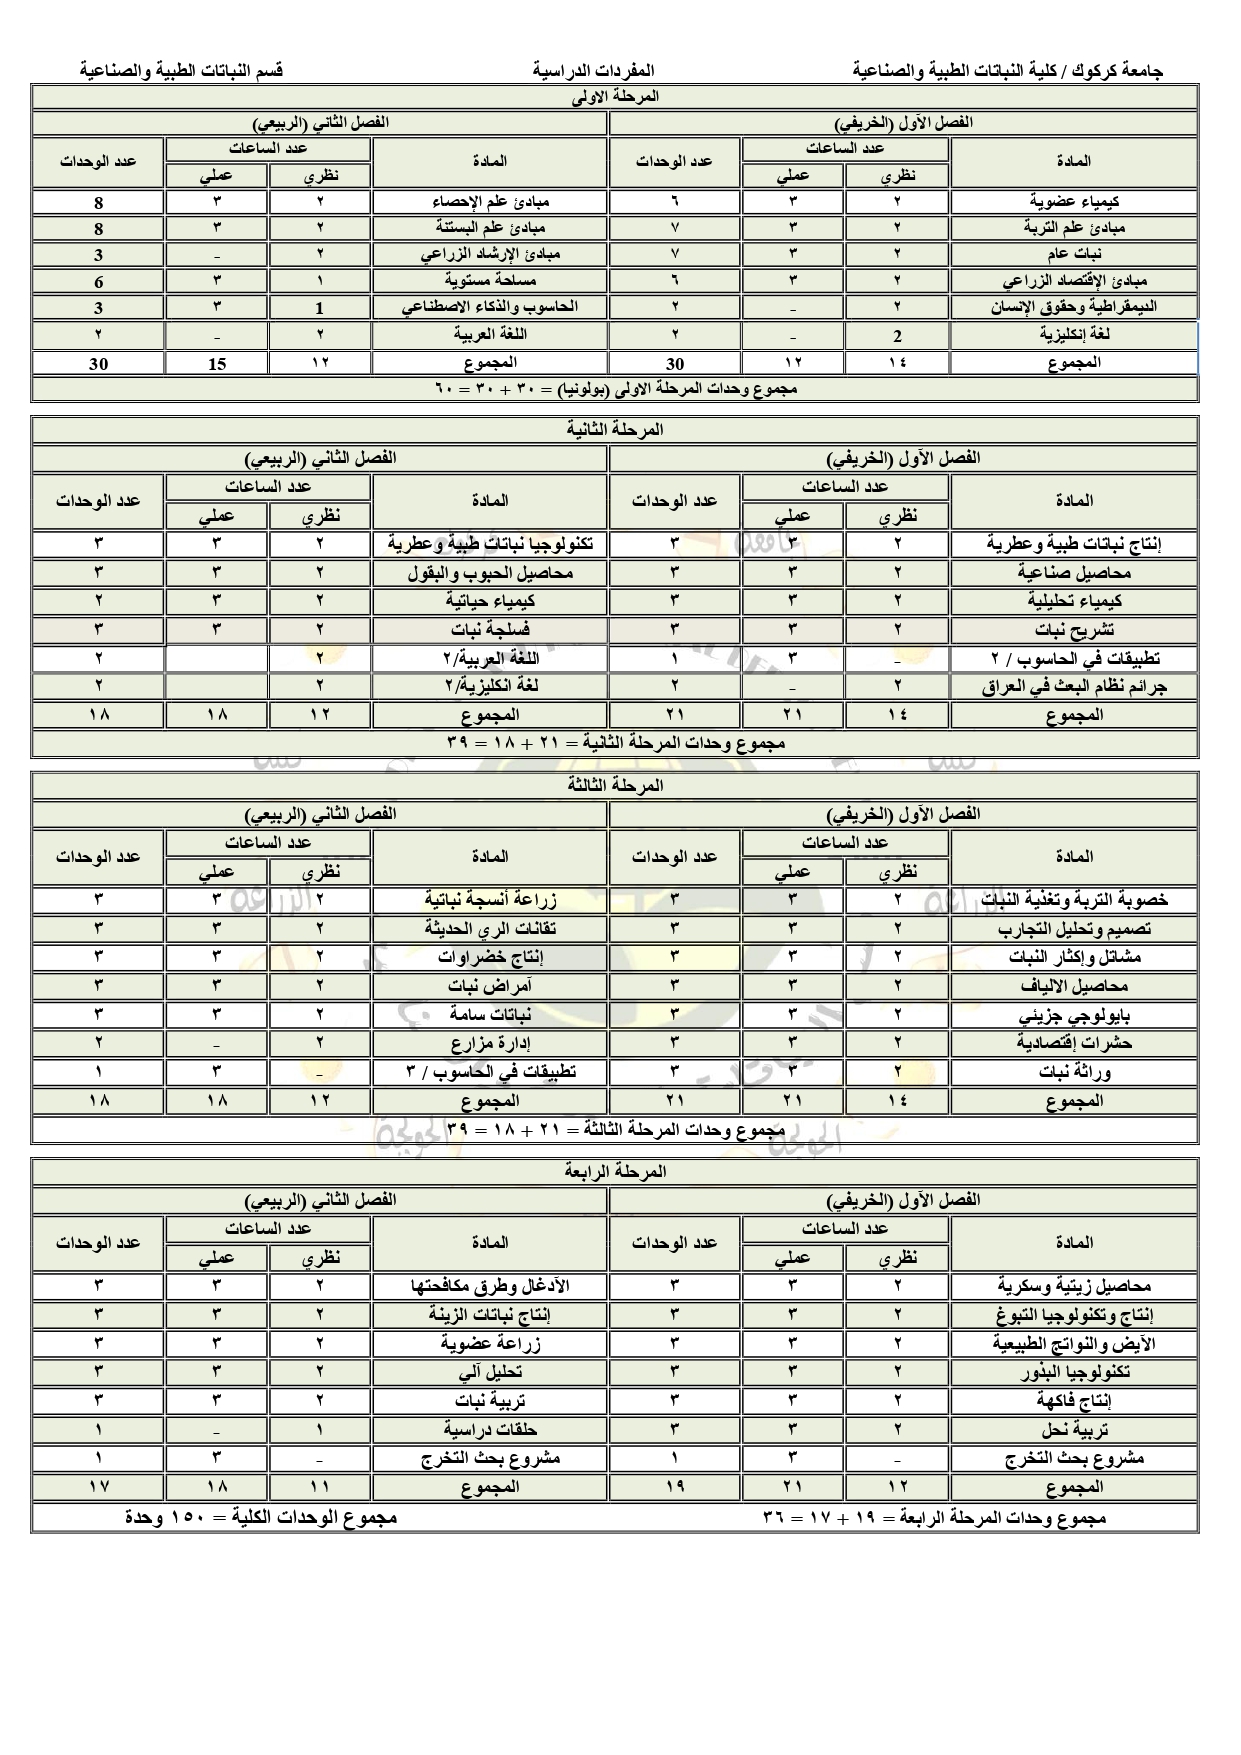 جامعة كركوك / كلية النباتات الطبية والصناعية المفردات الدراسية قسم النباتات الطبية والصناعية
المرحلة الاولى
الفصل الأول (الخريفي) الفصل الثاني (الربيعي)
المادة عدد الساعات عدد الوحدات المادة عدد الساعات عدد الوحدات
نظري عملي نظري عملي
كيمياء عضوية ٢ ٣ ٦ مبادئ علم الإحصاء ٢ ٣ 8
مبادئ علم التربة ٢ ٣ ٧ مبادئ علم البستنة ٢ ٣ 8
نبات عام ٢ ٣ ٧ مبادئ الإرشاد الزراعي ٢ - 3
مبادئ الإقتصاد الزراعي ٢ ٣ ٦ مساحة مستوية ١ ٣ 6
الديمقراطية وحقوق الإنسان ٢ - ٢ الحاسوب والذكاء الاصطناعي 1 ٣ 3
لغة إنكليزية 2 - ٢ اللغة العربية ٢ - ٢
المجموع ١٤ ١٢ 30 المجموع ١٢ 15 30
مجموع وحدات المرحلة الاولى (بولونيا) = ٣٠ + ٣٠ = ٦٠
المرحلة الثانية
الفصل الأول (الخريفي) الفصل الثاني (الربيعي)
المادة عدد الساعات عدد الوحدات المادة عدد الساعات عدد الوحدات
نظري عملي نظري عملي
إنتاج نباتات طبية وعطرية ٢ ٣ ٣ تكنولوجيا نباتات طبية وعطرية ٢ ٣ ٣
محاصيل صناعية ٢ ٣ ٣ محاصيل الحبوب والبقول ٢ ٣ ٣
كيمياء تحليلية ٢ ٣ ٣ كيمياء حياتية ٢ ٣ ٢
تشريح نبات ٢ ٣ ٣ فسلجة نبات ٢ ٣ ٣
تطبيقات في الحاسوب / ٢ - ٣ ١ اللغة العربية/٢ ٢ ٢
جرائم نظام البعث في العراق ٢ - ٢ لغة انكليزية/٢ ٢ ٢
المجموع ١٤ ٢١ ٢١ المجموع ١٢ ١٨ ١٨
مجموع وحدات المرحلة الثانية = ٢١ + ١٨ = ٣٩
المرحلة الثالثة
الفصل الأول (الخريفي) الفصل الثاني (الربيعي)
المادة عدد الساعات عدد الوحدات المادة عدد الساعات عدد الوحدات
نظري عملي نظري عملي
خصوبة التربة وتغذية النبات ٢ ٣ ٣ زراعة أنسجة نباتية ٢ ٣ ٣
تصميم وتحليل التجارب ٢ ٣ ٣ تقانات الري الحديثة ٢ ٣ ٣
مشاتل وإكثار النبات ٢ ٣ ٣ إنتاج خضراوات ٢ ٣ ٣
محاصيل الالياف ٢ ٣ ٣ آمراض نبات ٢ ٣ ٣
بايولوجي جزيئي ٢ ٣ ٣ نباتات سامة ٢ ٣ ٣
حشرات إقتصادية ٢ ٣ ٣ إدارة مزارع ٢ - ٢
وراثة نبات ٢ ٣ ٣ تطبيقات في الحاسوب / ٣ - ٣ ١
المجموع ١٤ ٢١ ٢١ المجموع ١٢ ١٨ ١٨
مجموع وحدات المرحلة الثالثة = ٢١ + ١٨ = ٣٩
المرحلة الرابعة
الفصل الأول (الخريفي) الفصل الثاني (الربيعي)
المادة عدد الساعات عدد الوحدات المادة عدد الساعات عدد الوحدات
نظري عملي نظري عملي
محاصيل زيتية وسكرية ٢ ٣ ٣ الآدغال وطرق مكافحتها ٢ ٣ ٣
إنتاج وتكنولوجيا التبوغ ٢ ٣ ٣ إنتاج نباتات الزينة ٢ ٣ ٣
الآيض والنواتج الطبيعية ٢ ٣ ٣ زراعة عضوية ٢ ٣ ٣
تكنولوجيا البذور ٢ ٣ ٣ تحليل آلي ٢ ٣ ٣
إنتاج فاكهة ٢ ٣ ٣ تربية نبات ٢ ٣ ٣
تربية نحل ٢ ٣ ٣ حلقات دراسية ١ - ١
مشروع بحث التخرج - ٣ ١ مشروع بحث التخرج - ٣ ١
المجموع ١٢ ٢١ ١٩ المجموع ١١ ١٨ ١٧
مجموع وحدات المرحلة الرابعة = ١٩ + ١٧ = ٣٦ مجموع الوحدات الكلية = ١٥٠ وحدة